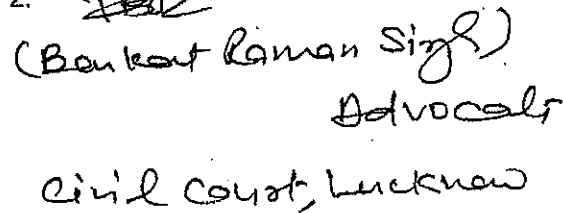 2.
(Bankat Raman Singh)
Advocate
Civil Court, Lucknow